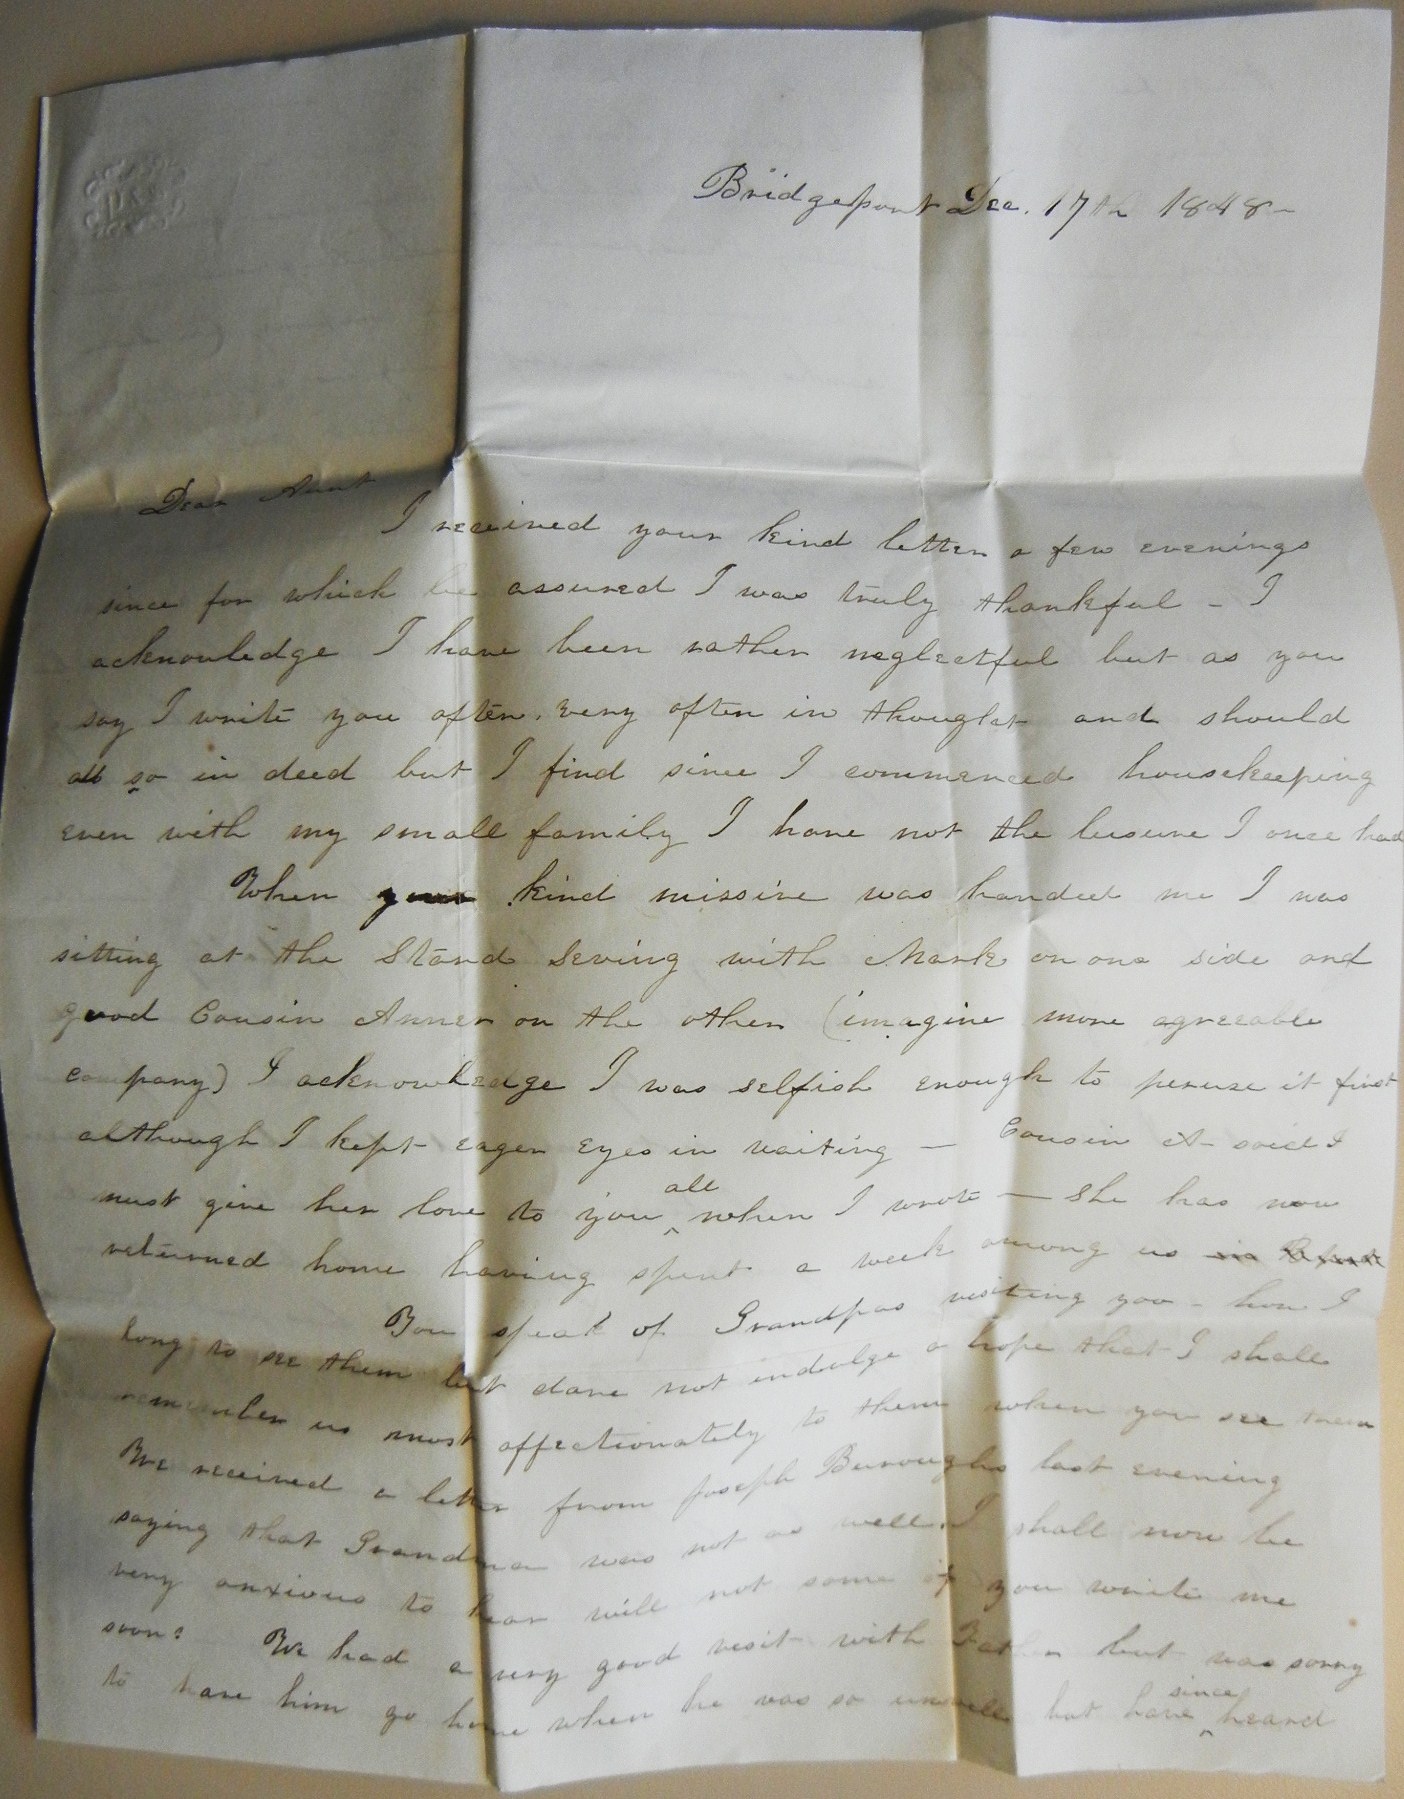 Bridgeport Dec. 17th 1848-
Dear Aunt
I received your kind letter a few evenings
since for which be assured I was truly thankful - I
acknowledge I have been rather neglectful but as you
say I write you often, very often in thought and should
so in deed but I find since I commenced housekeeping
even with my small family I have not the leisure I once had
When your kind missive was handed me I was
sitting at the Stand Sewing with Mark on one side and
good Cousin Anner on the other (imagine more agreeable
company) I acknowledge I was selfish enough to peruse it first
although I kept eager eyes in waiting - Cousin A- said I
must give her love to you all when I wrote - She has now
returned home having spent a week among us
You speak of Grandpas visiting you - how I
long to see them but dare not indulge a hope that I shall
remember us most affectionately to them when you see them
We received a letter from Joseph Buroughs last evening
saying that Grandma was not as well. I shall now be
very anxious to hear will not some of you write me
soon? We had a very good visit with Father but was sorry
to have him go home when he was so unwell but have since heard